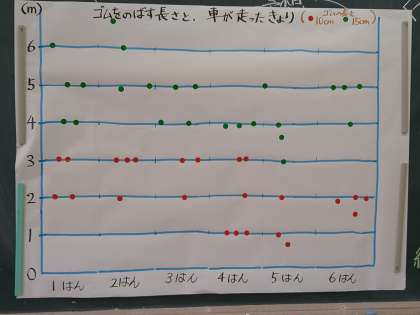 (m) ゴムをのばす長さと、車が走ったきょり (●10cm ●15cm)
6
5
4
3
2
1
0
1はん 2はん 3はん 4はん 5はん 6はん